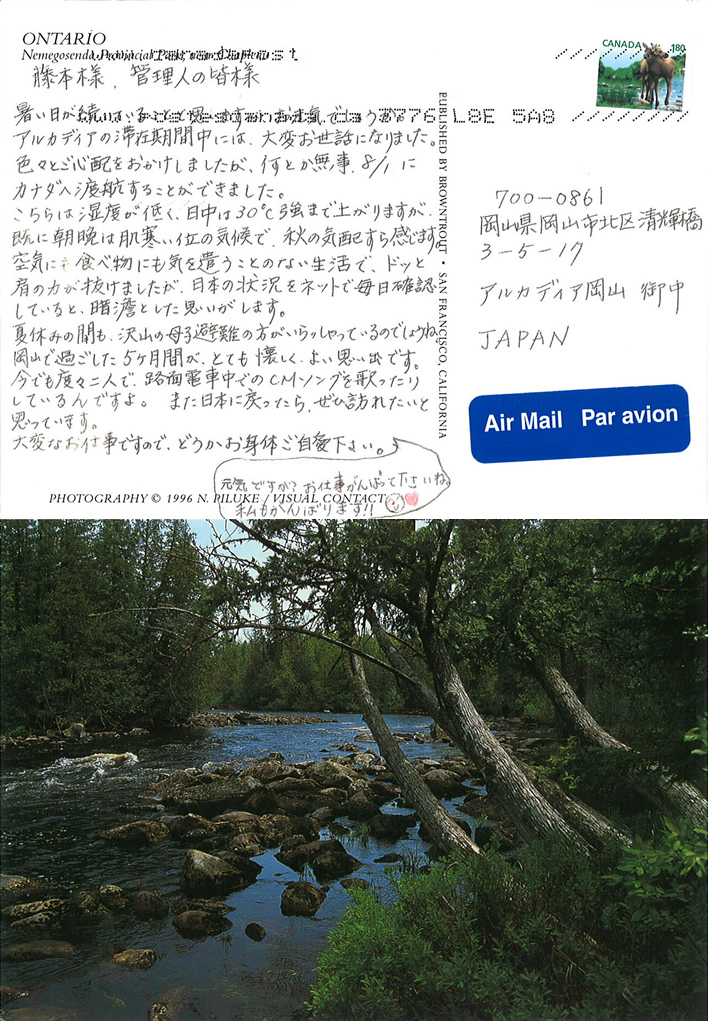 ONTARIO
Nemegosenda Provincial Park, near Chapleau
藤本様、管理人の皆様
暑い日が続いていることと思いますが、お元気でしょうか。
アルカディアの滞在期間中には、大変お世話になりました。
色々とご心配をおかけしましたが、何とか無事、8/1 に
カナダへ渡航することができました。
こちらは湿度が低く、日中は30℃強まで上がりますが、
既に朝晩は肌寒い位の気候で、秋の気配すら感じます。
空気にも食べ物にも気を遣うことのない生活で、ドッと
肩の力が抜けましたが、日本の状況をネットで毎日確認
していると、暗澹とした思いがします。
夏休みの間も、沢山の母子避難の方がいらっしゃっているのでしょうね。
岡山で過ごした5ヶ月間が、とても懐しく、よい思い出です。
今でも度々二人で、路面電車中でのCMソングを歌ったり
しているんですよ。 また日本に戻ったら、ぜひ訪れたいと
思っています。
大変なお仕事ですので、どうかお身体ご自愛下さい。
元気ですか? お仕事がんばって下さいね。
私もがんばります!!
PHOTOGRAPHY © 1996 N. PILUKE / VISUAL CONTACT
PUBLISHED BY BROWNTROUT • SAN FRANCISCO, CALIFORNIA
CANADA
180
7776 L8E 5A8
700-0861
岡山県岡山市北区清輝橋
3-5-17
アルカディア岡山 御中
JAPAN
Air Mail Par avion